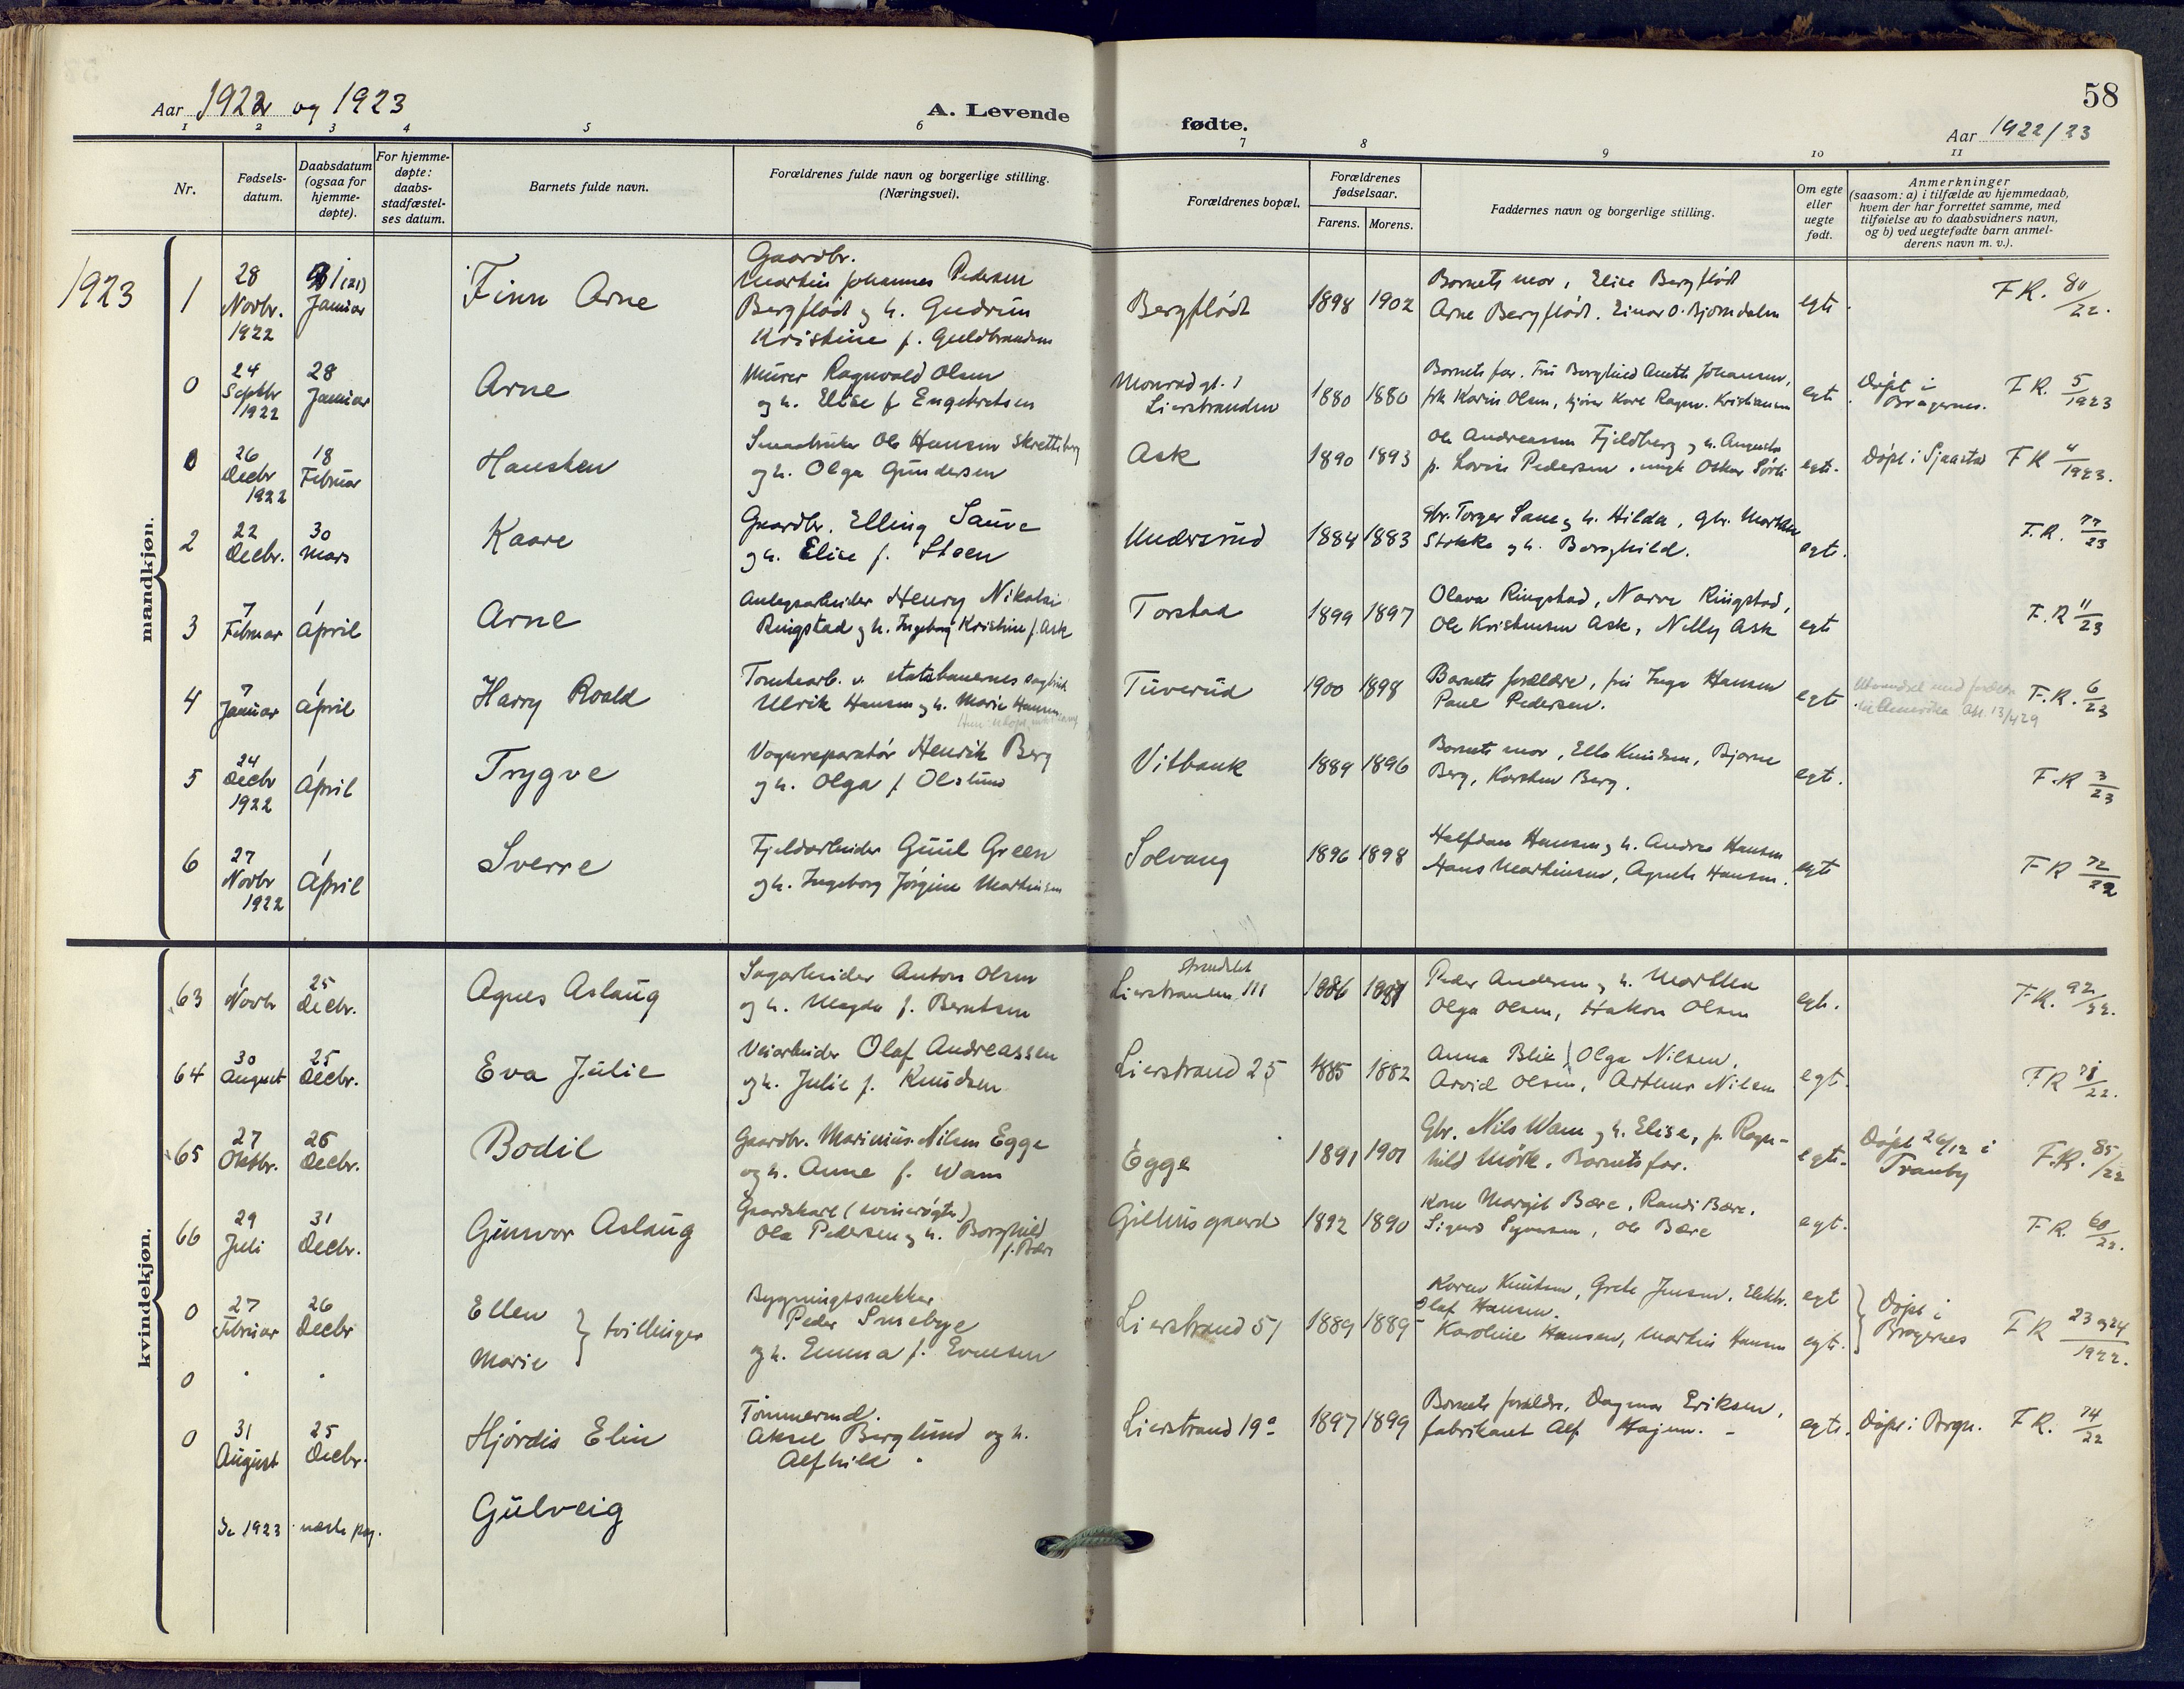 58
Aar 1922 og 1923
A. Levende
fødte.
Aar 1922/23
1 2 3 4 5 6 7 8 9 10 11
Nr.
Fødsels-
datum.
Daabsdatum
(ogsaa for
hjemme-
døpte).
For hjemme-
døpte:
daabs-
stadfæstel-
ses datum.
Barnets fulde navn.
Forældrenes fulde navn og borgerlige stilling.
(Næringsvei).
Forældrenes bopæl.
Forældrenes
fødselsaar.
Farens. Morens.
Faddernes navn og borgerlige stilling.
Om egte
eller
uegte
født.
Anmerkninger
(saasom: a) i tilfælde av hjemmedaab,
hvem der har forrettet samme, med
tilføielse av to daabsvidners navn,
og b) ved uegtefødte barn anmel-
derens navn m. v.).
mandkjøn.
1923
1
28
Novbr.
1922
Januar
Finn Arne
Gaardbr.
Martin Johannes Pedersen
Bergflødt og h. Gudrun
Kristine f. Guldbrandsen
Bergflødt
1898 1902
Barnets mor, Elise Bergflødt
Arne Bergflødt. Einar O. Bjorndalen
egte
F.R. 80/22.
0
24
Septbr
1922
28
Januar
Arne
Murer Ragnvald Olsen
og h. Elise f Engebretsen
Lierstranden
1880 1880
Barnets far. Fru Borghild Anette Johansen,
frk Karin Olsen, Kristiansen
egte
Døpt i
Bragernes.
F.R. 5/1923
0
26
Decbr
1922
18
Februar
Hansten
Smaabruker Ole Hansen
og h. Olga Gundersen
Ask
1890 1893
Ole Andreassen Fjeldberg og h. Augusta
p. Lovise Pedersen, ungk Oskar
egte.
Døpt i Sjaastad
F R 4/1923.
2
22
Decbr.
30
mars
Kaare
Gaardbr. Elling Sauve
og h. Elise f. Steen
Undersrud
1884 1883
Gbr. Torger og h. Hilda, gbr.
og h. Borghild.
egte.
F.R. 77/23
3
7
Februar
1
April
Arne
Anlegsarbeider Henry Nikolai
Ringstad og h. Ingeborg Kristine f. Ask
Torstad
1899 1897
Olava Ringstad, Narve Ringstad,
Ole Kristensen Ask, Nelly Ask
egte
F.R 11/23
4
7
Januar
1
April
Harry Roald
Tomtearb. v. statsbanernes
Ulrik Hansen og h. Marie Hansen
Tuverud
1900 1898
Barnets forældre, fru Inga Hansen
Paul Pedersen.
egte
Utvandret med foreldre
til Amerika 13/4 29
F.R. 6/23
5
24
Decbr
1922
1
April
Trygve
Vognreparatør Henrik Berg
og h. Olga f Olslund
Vitbank
1889 1896
Barnets mor, Ella Knudsen, Bjarne
Berg, Karsten Berg.
egte.
F.R 3/23
6
27
Novbr
1922
1
April
Sverre
Fjeldarbeider Guul Green
og h. Ingeborg Jørgine Martinsen
Solvang
1896 1898
Halfdan Hansen og h. Andrea Hansen
Hans Martinsen, Agnete Hansen.
egte
F R 72/22
kvindekjøn.
63
1
Novbr
25
Decbr.
Agnes Aslaug
Sagarbeider Anton Olsen
og h. Magda f. Berntsen
Lierstranden 111
1886
Peder Andersen og h. Marthea
Olga Olsen, Hakon Olsen
egte.
F.R. 92/22.
64
30
August
25
Decbr.
Eva Julie
Veiarbeider Olaf Andreassen
og h. Julie f. Knudsen
Lierstrand 25
1885 1882
Anna Blie Olga Nilsen,
Arvid Olsen, Arthur Nilsen
egte.
F R 71/22.
65
27
Oktbr.
26
Decbr.
Bodil
Gaardbr. Marinius Nilsen Egge
og h. Anne f. Wam
Egge
1891 1901
Gbr. Nils Wam og h. Elise, p. Ragn-
hild Mørk. Barnets far.
egte.
Døpt 26/12 i
Tranby
F.R. 85/22
66
29
Juli
31
Decbr.
Gunvor Aslaug
Gaardskarl (svinerøgter)
Ola Pedersen og h. Borghild
f. Bære
Gilhusgaard
1892 1890
Kone Margit Bære, Randi Bære.
Sigurd Syversen, Ole Bære
egt.
F.R. 60/22.
0
27
Februar
26
Decbr
Ellen
Marie
tvillinger
Bygningssnekker
Peder Snsebye
og h. Emma f. Evensen
Lierstrand 51
1889 1889
Karen Knutsen, Grete Jensen, Elektr.
Olaf Hansen.
Karoline Hansen, Martin Hansen
egt
egte.
Døpt i
Bragernes
F R 23 og 24/1922.
0
0
31
August
25
Decbr.
Hjørdis Elin
Tømmermd.
Aksel Berglund og h.
Alfhild.
Lierstrand 19a
1897 1899
Barnets forældre, Dagmar Eriksen,
fabrikant Alf Hajem.
egte.
Døpt i Bragn.
F R. 74/22
Se 1923 næste pag.
Gulveig